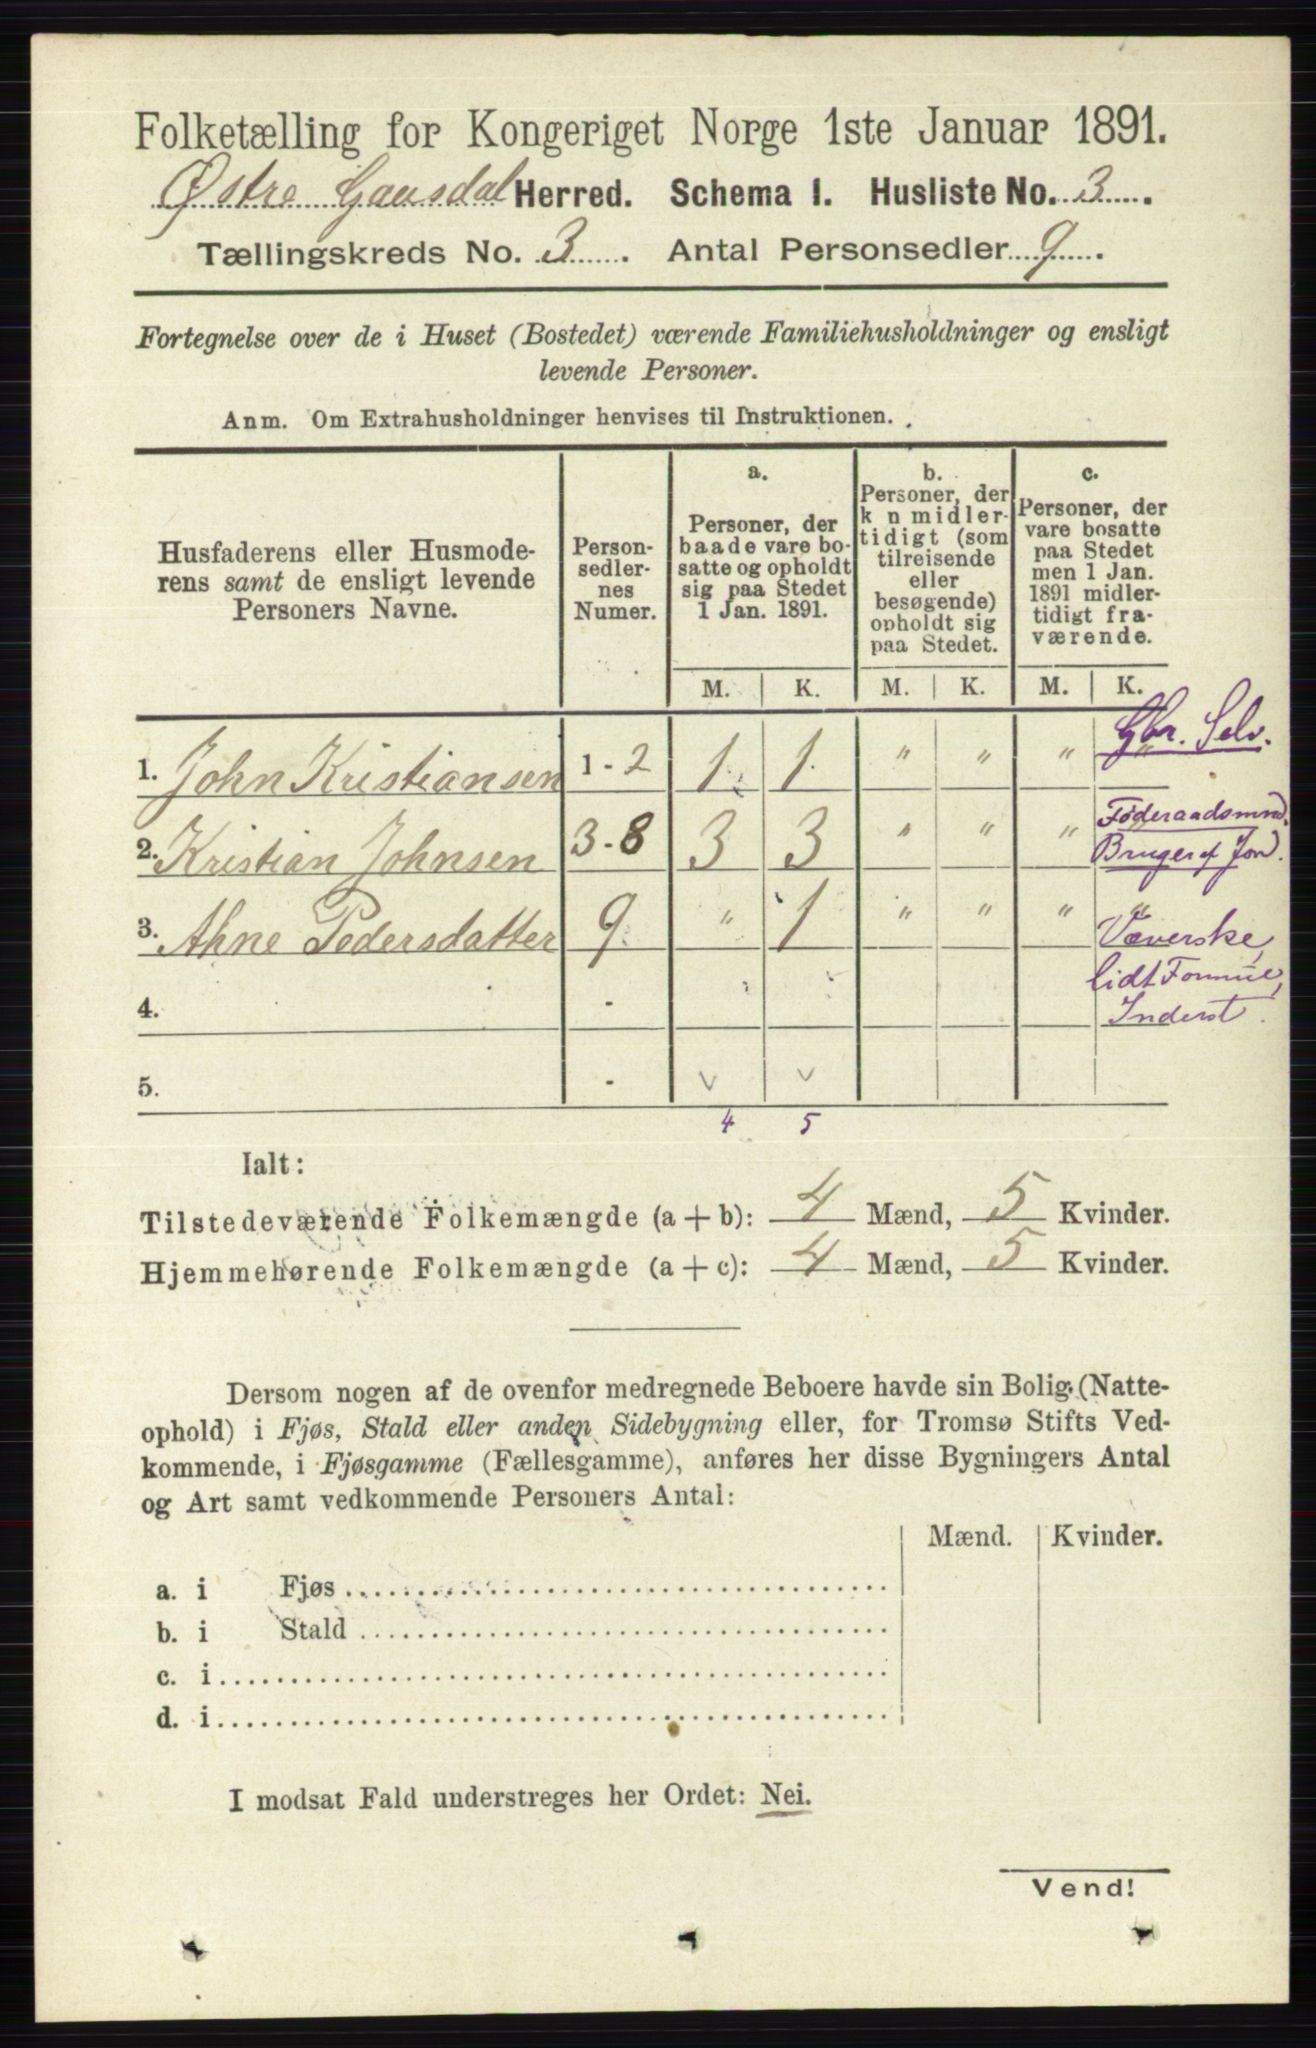 Folketælling for Kongeriget Norge 1ste Januar 1891.
Østre Gausdal Herred. Schema I. Husliste No. 3.
Tællingskreds No. 3. Antal Personsedler 9.
Fortegnelse over de i Huset (Bostedet) værende Familiehusholdninger og ensligt
levende Personer.
Anm. Om Extrahusholdninger henvises til Instruktionen.
Husfaderens eller Husmode-
rens samt de ensligt levende
Personers Navne.
Person-
sedler-
nes
Numer.
a.
Personer, der
baade vare bo-
satte og opholdt
sig paa Stedet
1 Jan. 1891.
b.
Personer, der
k n midler-
tidigt (som
tilreisende
eller
besøgende)
opholdt sig
paa Stedet.
c.
Personer, der
vare bosatte
paa Stedet
men 1 Jan.
1891 midler-
tidigt fra-
værende.
M. K. M. K. M. K.
1. John Kristiansen 1-2 1 1 " " " " Gbr. Selv.
2. Kristian Johnsen 3-8 3 3 " " " Føderaadsmnd.
Bruger af Jord.
3. Ahne Pedersdatter 9. " 1 " " " "
Væverske,
lidt Formue,
4. -
Inderst.
5. - v v
4 5
Ialt:
Tilstedeværende Folkemængde (a + b): 4 Mænd, 5 Kvinder.
Hjemmehørende Folkemængde (a + c): 4 Mænd, 5 Kvinder.
Dersom nogen af de ovenfor medregnede Beboere havde sin Bolig (Natte-
ophold) i Fjøs, Stald eller anden Sidebygning eller, for Tromsø Stifts Ved-
kommende, i Fjøsgamme (Fællesgamme), anføres her disse Bygningers Antal
og Art samt vedkommende Personers Antal:
Mænd. Kvinder.
a. i Fjøs
b. i Stald
c. i
d. i
I modsat Fald understreges her Ordet: Nei.
Vend!